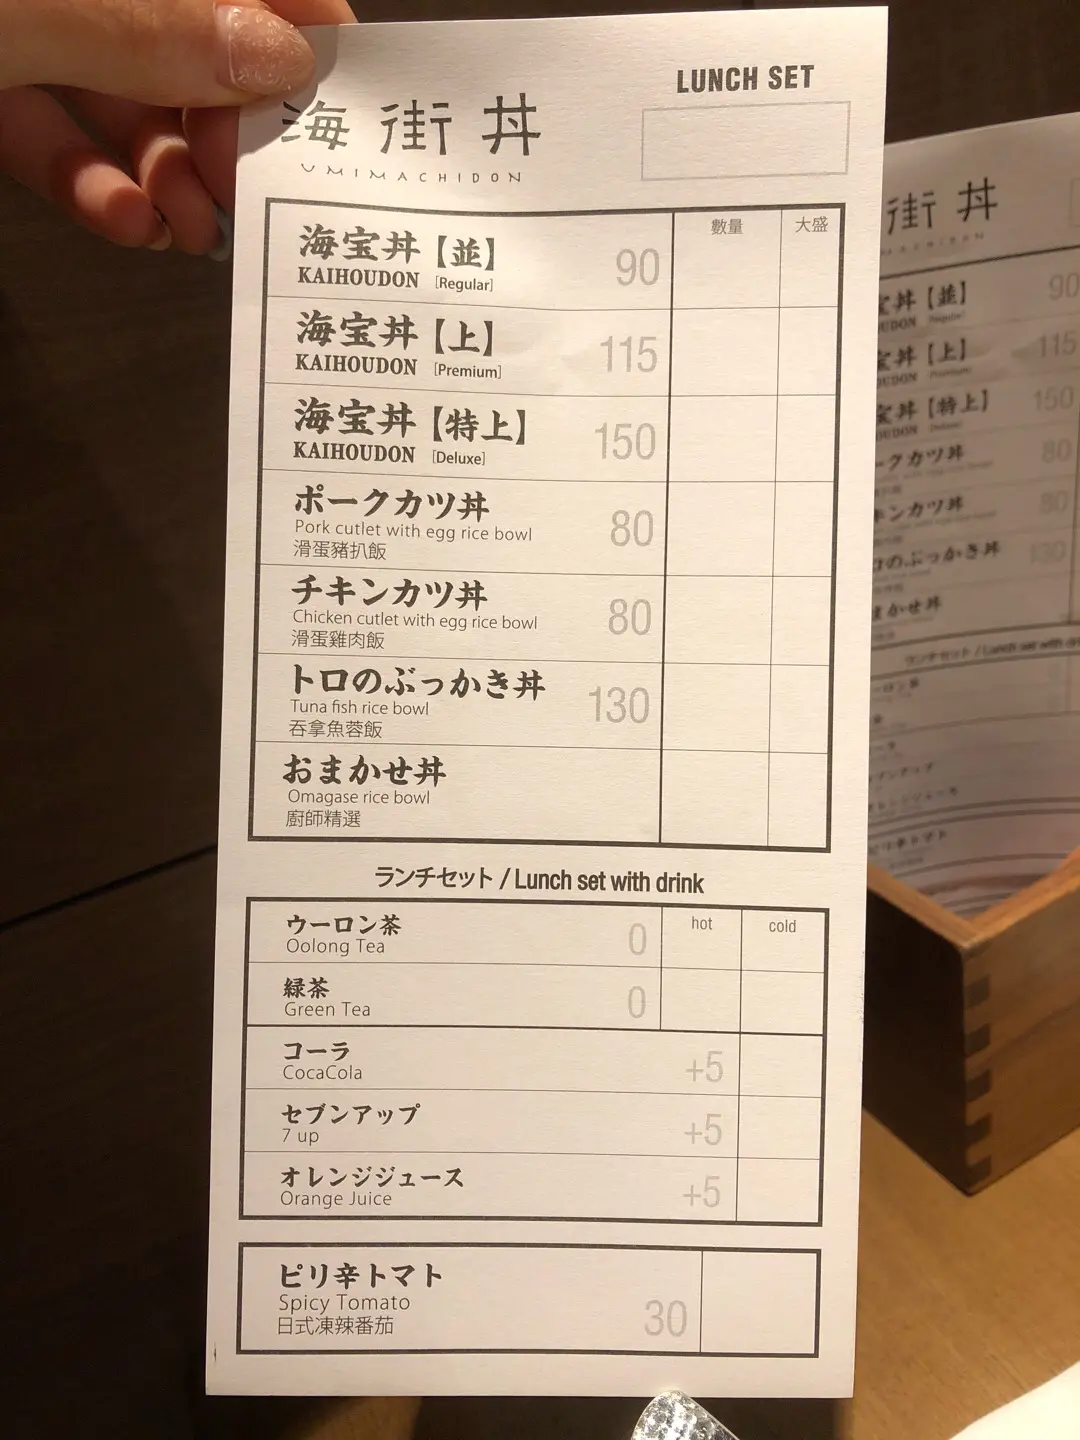 LUNCH SET
海街丼
UMIMACHIDON
數量 大盛
海宝丼【並】
KAIHOUDON [Regular]
90
海宝丼【上】
KAIHOUDON [Premium]
115
海宝丼【特上】
KAIHOUDON [Deluxe]
150
ポークカツ丼
Pork cutlet with egg rice bowl
滑蛋豬扒飯
80
チキンカツ丼
Chicken cutlet with egg rice bowl
滑蛋雞肉飯
80
トロのぶっかき丼
Tuna fish rice bowl
吞拿魚蓉飯
130
おまかせ丼
Omagase rice bowl
廚師精選
ランチセット / Lunch set with drink
hot cold
ウーロン茶
Oolong Tea
0
緑茶
Green Tea
0
コーラ
CocaCola
+5
セブンアップ
7 up
+5
オレンジジュース
Orange Juice
+5
ピリ辛トマト
Spicy Tomato
日式凍辣番茄
30
街丼
宝丼【並】
90
宝丼【上】
115
宝丼【特上】
150
クカツ丼
80
キンカツ丼
80
ロのぶっかき丼
130
まかせ丼
ランチセット / Lunch set with